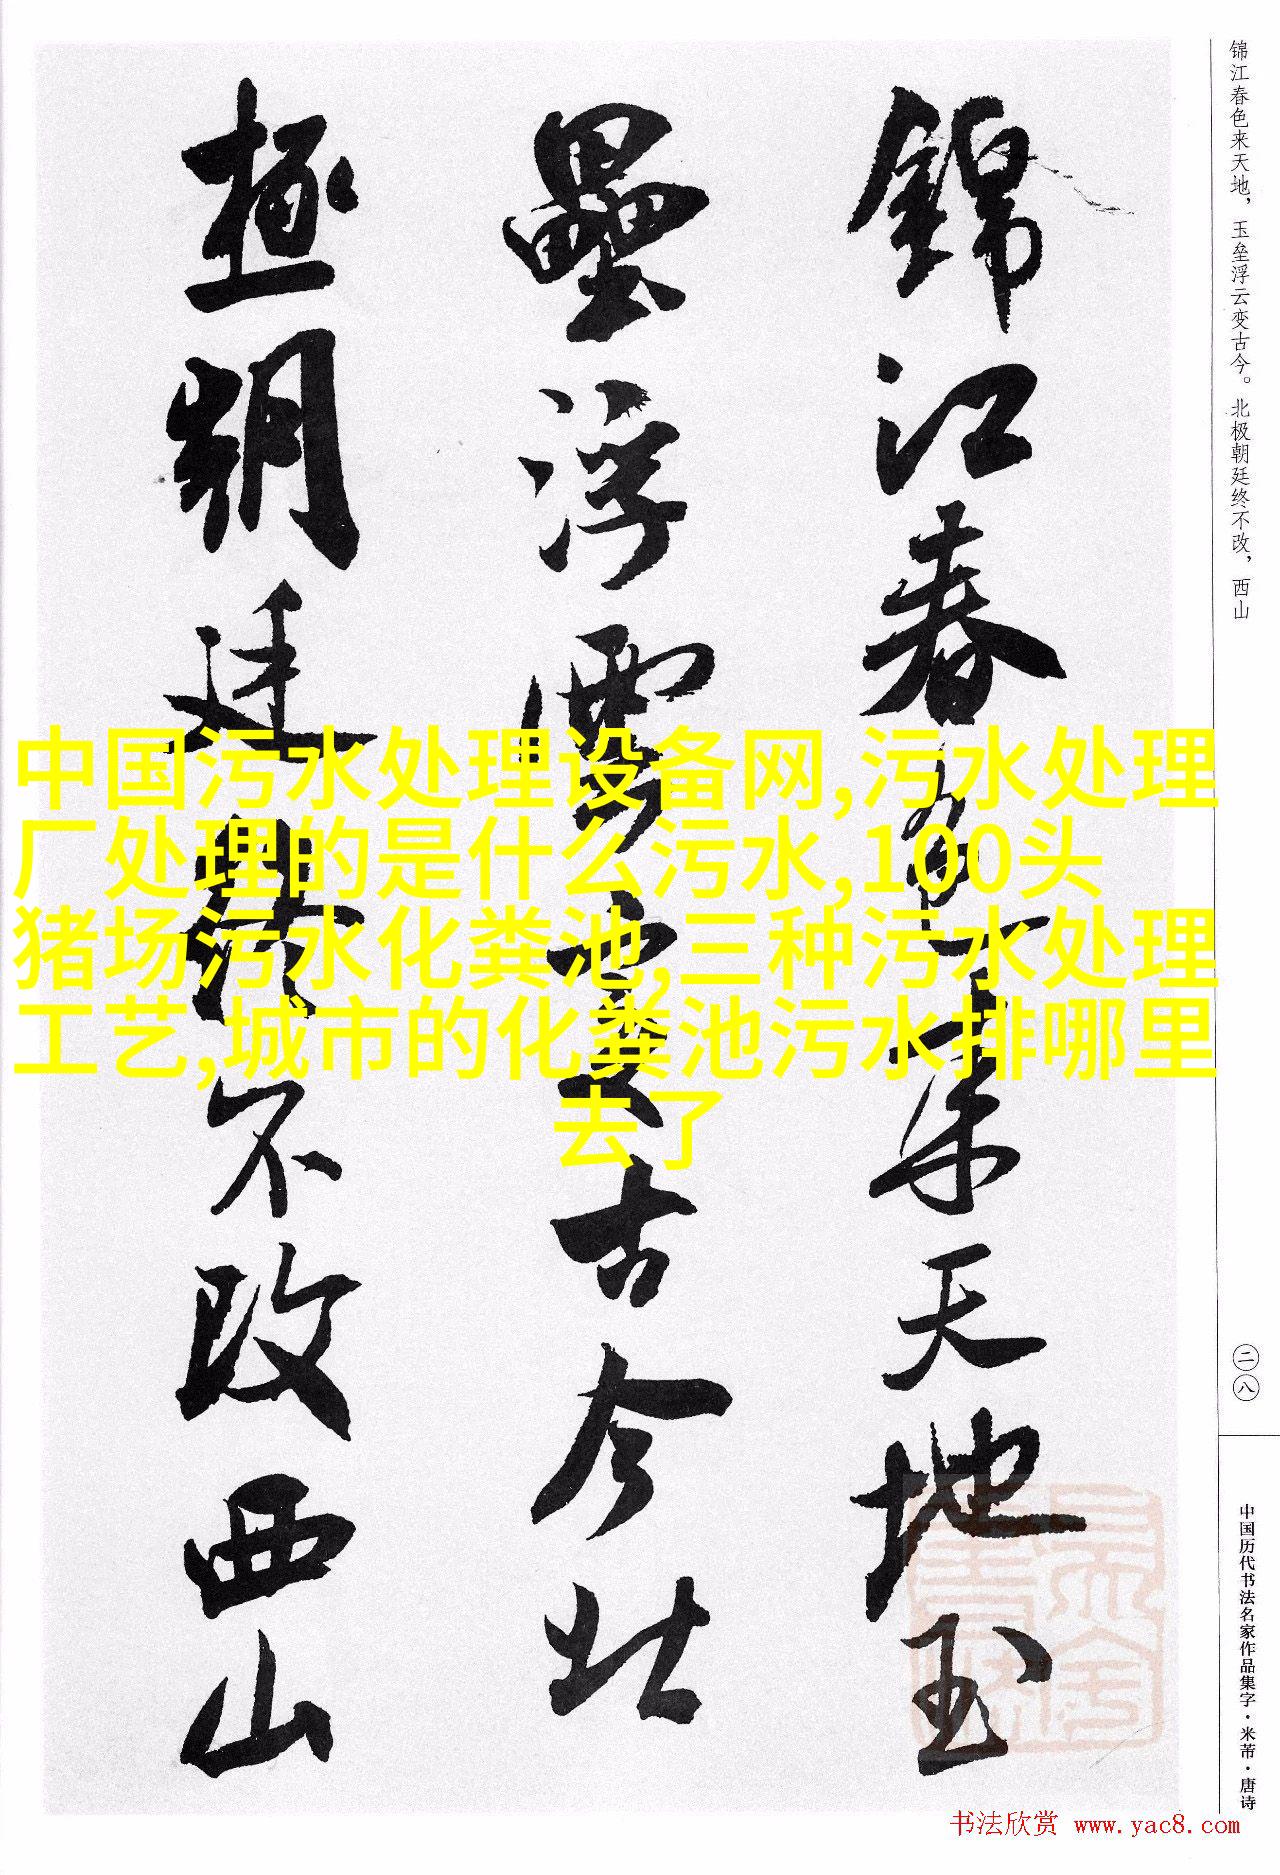 锦江春色来天地，玉垒浮云变古今。北极朝廷终不改，西山
錦江春色来天地玉
壘浮雲變古今北
極朝廷終不改西山
中国污水处理设备网,污水处理
厂处理的是什么污水,100头
猪场污水化粪池,三种污水处理
工艺,城市的化粪池污水排哪里
去了
二八
中国历代书法名家作品集字·米芾·唐诗
书法欣赏 www.yac8.com